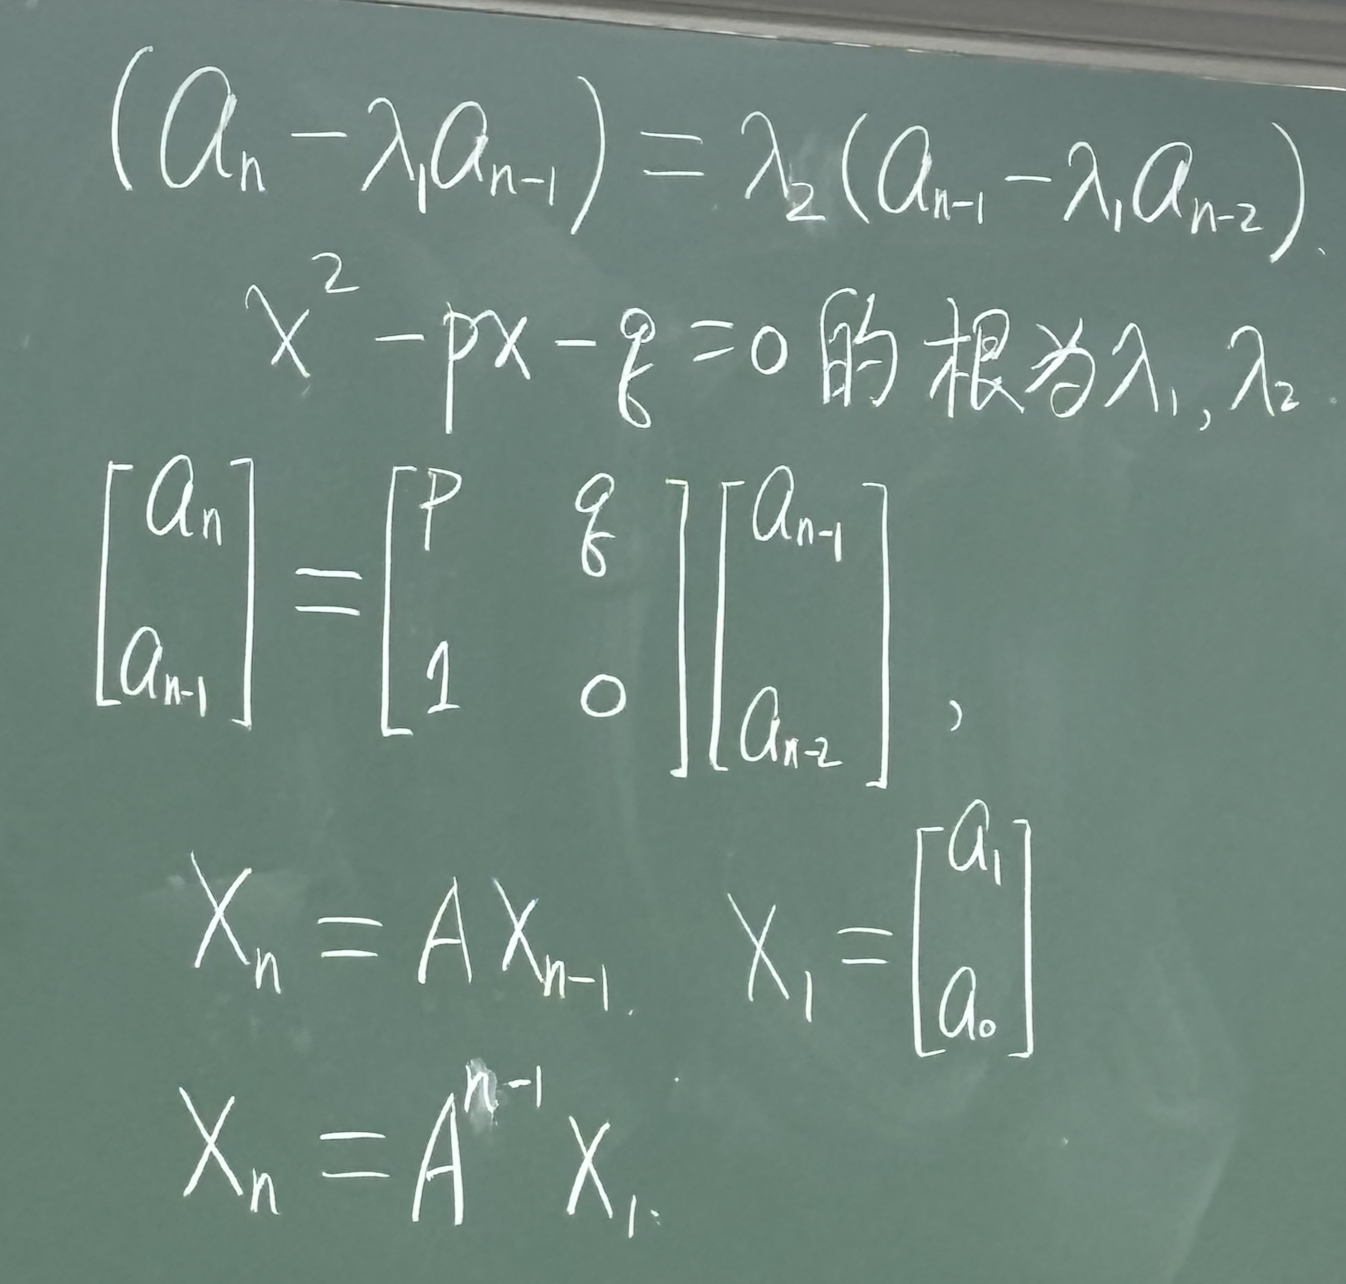 (aₙ − λ₁aₙ₋₁) = λ₂(aₙ₋₁ − λ₁aₙ₋₂).
x² − px − q = 0 的根为λ₁, λ₂.
[aₙ; aₙ₋₁] = [p q; 1 0][aₙ₋₁; aₙ₋₂],
Xₙ = AXₙ₋₁. X₁ = [a₁; a₀]
Xₙ = Aⁿ⁻¹X₁.